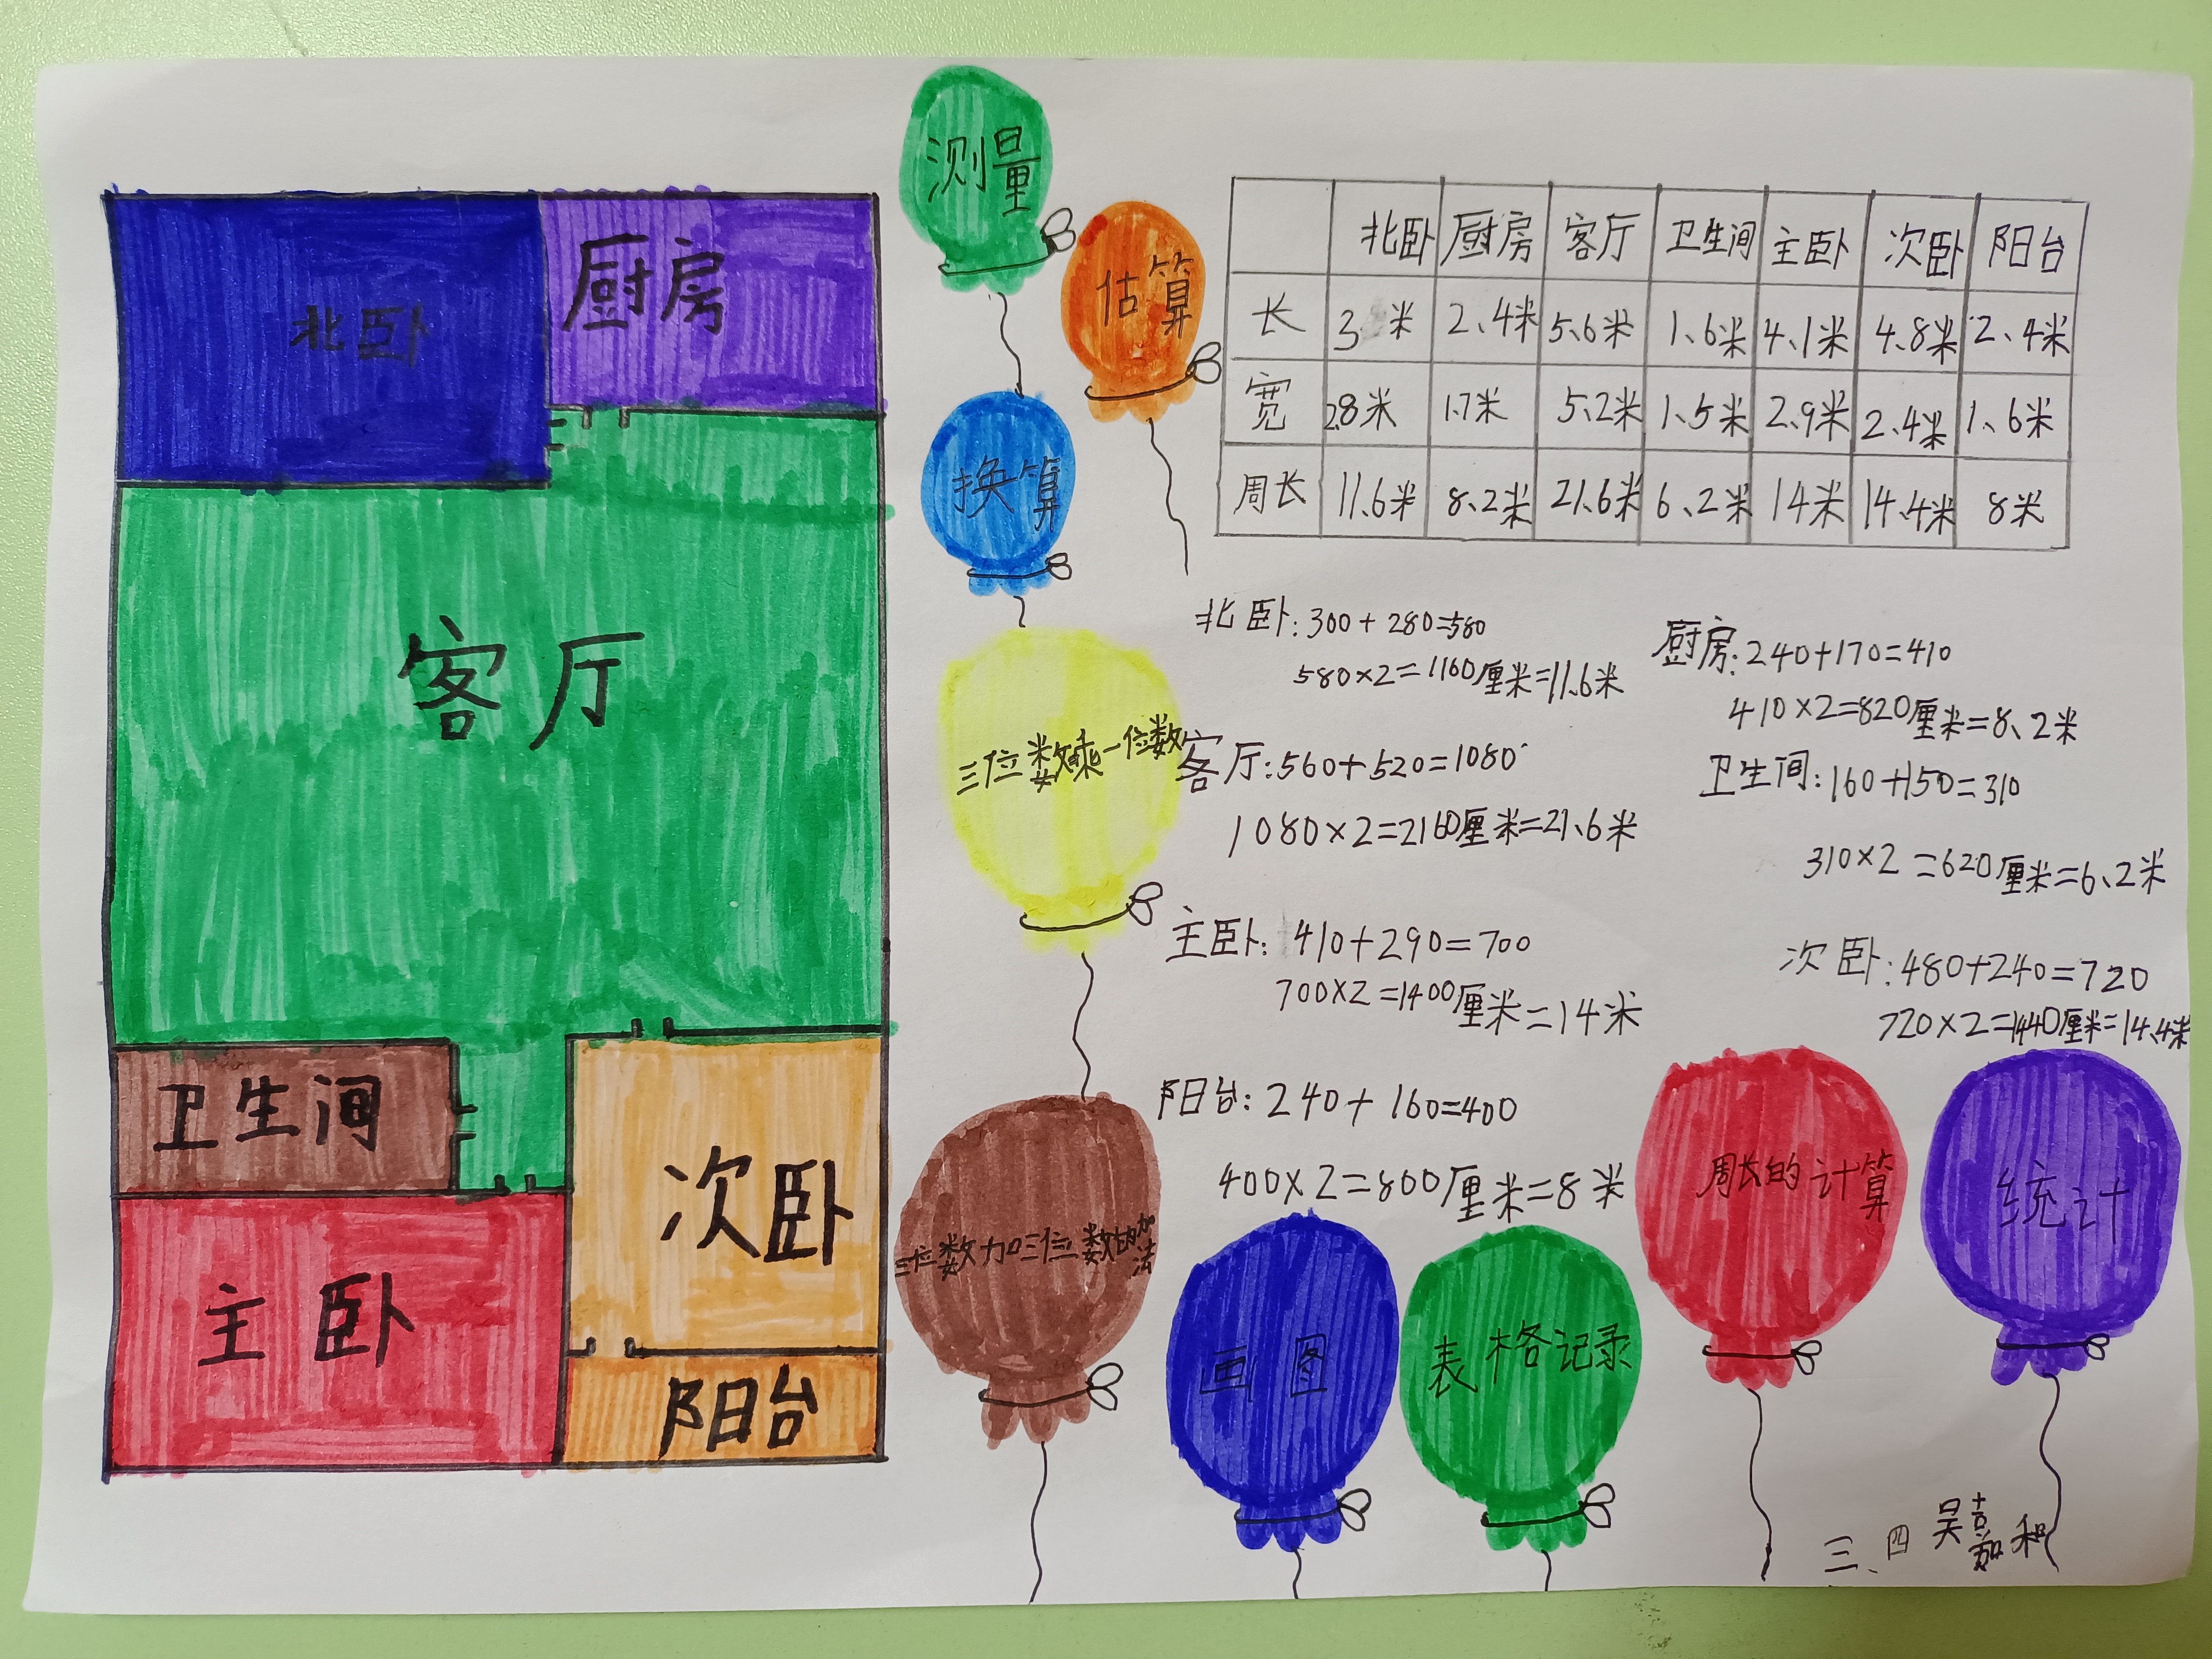 北卧
厨房
客厅
卫生间
次卧
主卧
阳台
测量
估算
换算
三位数乘一位数
三位数加三位数的加法
画图
表格记录
周长的计算
统计
北卧 厨房 客厅 卫生间 主卧 次卧 阳台
长 3米 2.4米 5.6米 1.6米 4.1米 4.8米 2.4米
宽 2.8米 1.7米 5.2米 1.5米 2.9米 2.4米 1.6米
周长 11.6米 8.2米 21.6米 6.2米 14米 14.4米 8米
北卧:300+280=580
580×2=1160厘米=11.6米
厨房:240+170=410
410×2=820厘米=8.2米
客厅:560+520=1080
1080×2=2160厘米=21.6米
卫生间:160+150=310
310×2=620厘米=6.2米
主卧:410+290=700
700×2=1400厘米=14米
次卧:480+240=720
720×2=1440厘米=14.4米
阳台:240+160=400
400×2=800厘米=8米
三、四 吴嘉和